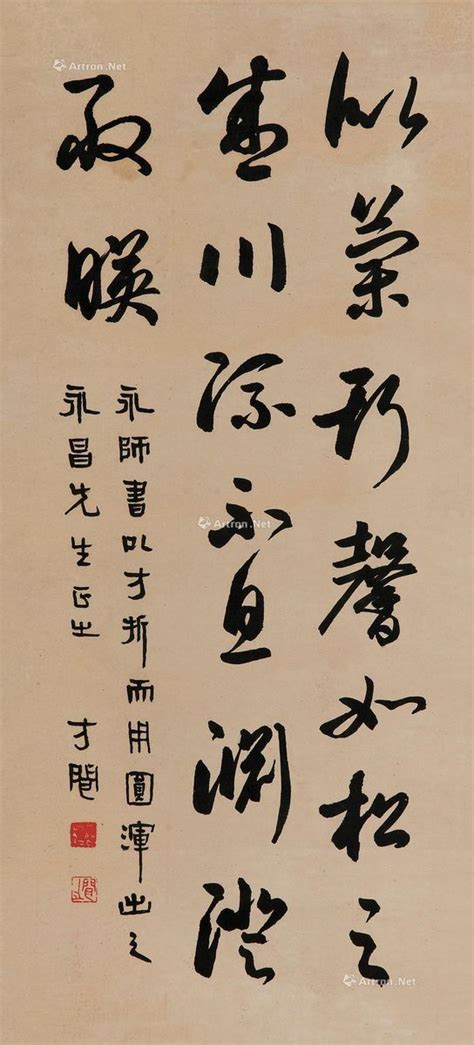 Artron.Net
似蘭斯馨如松之
盛川流不息淵澄
取暎
永師書以方折而用圓渾出之
永昌先生正之
Artron.Net
Artron.Net